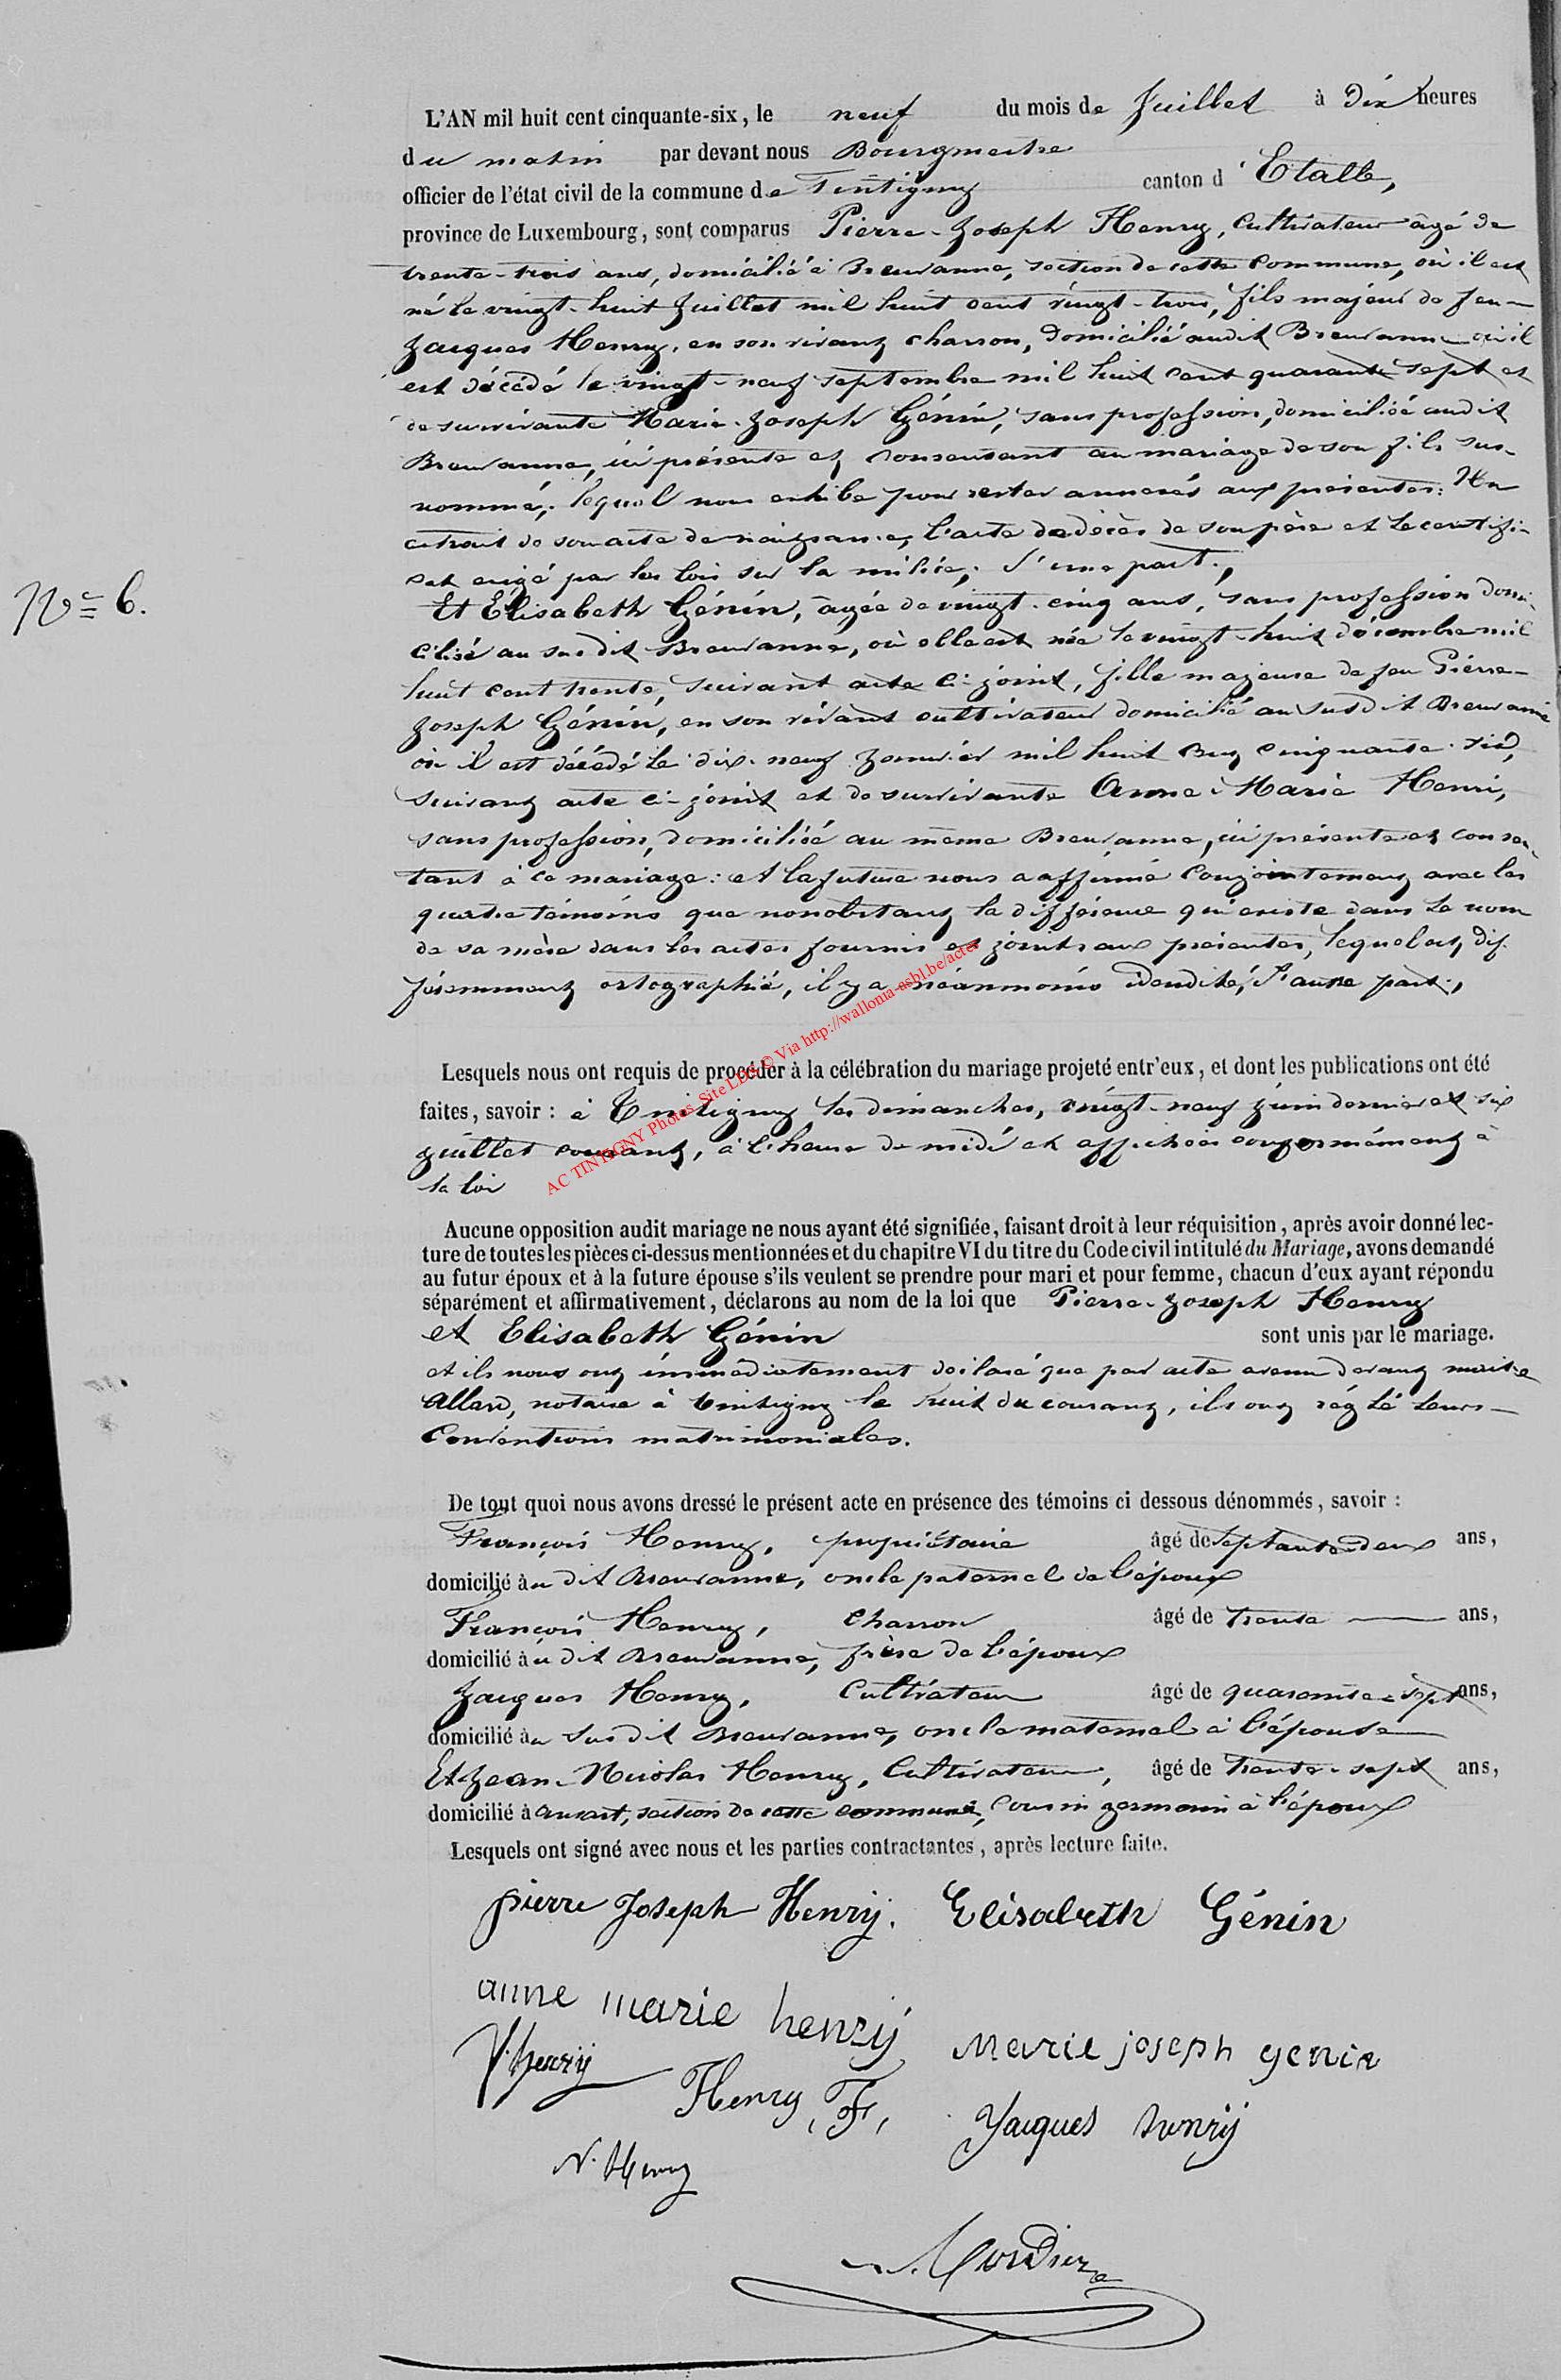 L'AN mil huit cent cinquante-six, le neuf du mois de Juillet à Dix heures
du matin par devant nous Bourgmestre
officier de l'état civil de la commune de Tintigny canton d'Etalle,
province de Luxembourg, sont comparus Pierre-Joseph Henry, Cultivateur âgé de
trente-trois ans, domicilié à Breuvanne, section de cette Commune, où il est
né le vingt-huit Juillet mil huit cent vingt-trois, fils majeur de feu
Jacques Henry, en son vivant charron, Domicilié audit Breuvanne où il
est décédé le vingt-neuf septembre mil huit cent quarante sept et
de survivante Marie-Joseph Génin, sans profession, domiciliée audit
Breuvanne, ici présente et consentant au mariage de son fils sus-
nommé, lequel nous exhibe pour rester annexés aux présentes: Un
extrait de son acte de naissance, l'acte de décès de son père et le certifi-
cat exigé par les lois sur la milice, d'une part.,
N° 6.
Et Elisabeth Génin, âgée de vingt-cinq ans, sans profession domi-
ciliée au susdit Breuvanne, où elle est née le vingt-huit décembre mil
huit cent trente, suivant acte ci-joint, fille majeure de feu Pierre-
Joseph Génin, en son vivant cultivateur domicilié au susdit Breuvanne
où il est décédé le dix-neuf Janvier mil huit cent cinquante-six,
suivant acte ci-joint et de survivante Anne-Marie Henri,
sans profession, domiciliée au même Breuvanne, ici présente et consen-
tant à ce mariage: et la future nous a affirmé Conjointement avec les
quatre témoins que nonobstant la différence qui existe dans le nom
de sa mère dans les actes fournis et joints aux présentes, lequel est dif-
féremment ortographié, il y a néanmoins idendité, d'autre part.,
Lesquels nous ont requis de procéder à la célébration du mariage projeté entr'eux, et dont les publications ont été
faites, savoir : à Tintigny les dimanches, vingt-neuf juin dernier et six
juillet courant, à l'heure de midi et affichées conformément à
la loi
AC TINTIGNY Photos Site LDG © Via http://wallonia-asbl.be/actes
Aucune opposition audit mariage ne nous ayant été signifiée, faisant droit à leur réquisition, après avoir donné lec-
ture de toutes les pièces ci-dessus mentionnées et du chapitre VI du titre du Code civil intitulé du Mariage, avons demandé
au futur époux et à la future épouse s'ils veulent se prendre pour mari et pour femme, chacun d'eux ayant répondu
séparément et affirmativement, déclarons au nom de la loi que Pierre-Joseph Henry
et Elisabeth Génin sont unis par le mariage.
et ils nous ont immédiatement déclaré que par acte avenu devant maître
Allard, notaire à Tintigny le huit du courant, ils ont réglé leurs
Conventions matrimoniales.
De tout quoi nous avons dressé le présent acte en présence des témoins ci dessous dénommés, savoir :
François Henry, propriétaire âgé de septante-deux ans,
domicilié au dit Breuvanne, oncle paternel de l'époux
François Henry, Charron âgé de trente ans,
domicilié au dit Breuvanne, frère de l'époux
Jacques Henry, Cultivateur âgé de quarante-sept ans,
domicilié au susdit Breuvanne, oncle maternel à l'épouse
Et Jean-Nicolas Henry, Cultivateur, âgé de trente-sept ans,
domicilié à Ansart, section de cette commune, Cousin germain à l'époux
Lesquels ont signé avec nous et les parties contractantes, après lecture faite.
pierre Joseph Henry. Elisabeth Génin
anne marie henrÿ Marie joseph genin
f. henrÿ Henry, F, Jacques henrÿ
N. Henry